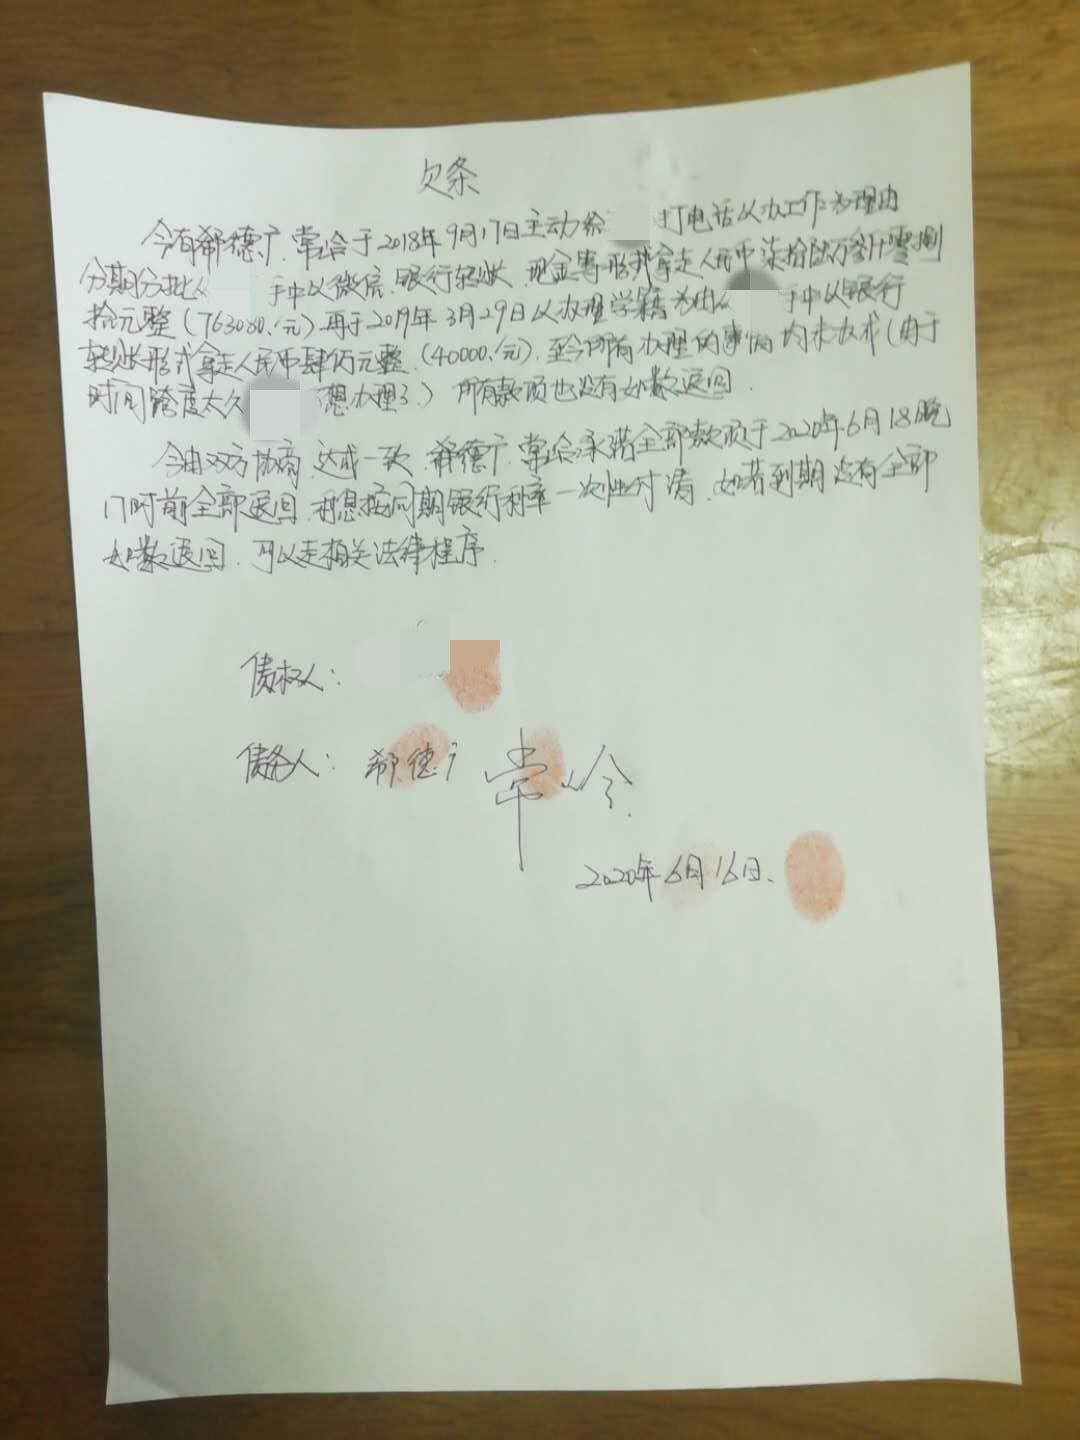 欠条
今有郗德广、常岭于2018年9月17日主动给 打电话以办工作为理由
分期分批从 手中以微信、银行转账、现金等形式拿走人民币柒拾陆万叁仟零捌
拾元整(763080.元)再于2019年3月29日以办理学籍为由从 手中以银行
转账形式拿走人民币肆万元整.(40000.元).至今所有办理的事情均未办成(由于
时间跨度太久 想办理了)所有款项也没有如数返回.
今由双方协商,达成一致,郗德广、常岭承诺全部款项于2020年6月18晚
17时前全部返回,利息按同期银行利率一次性付清,如若到期没有全部
如数返回,可以走相关法律程序.
债权人:
债务人: 郗德广 常岭
2020年6月16日.